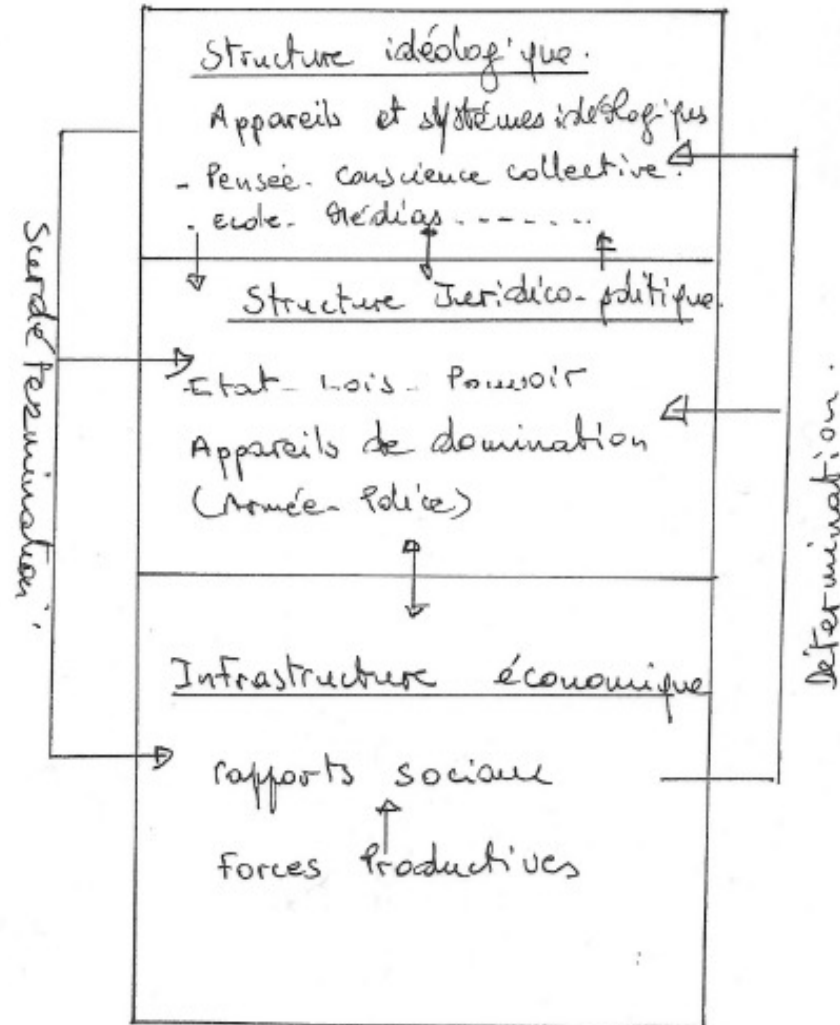 Structure idéologique.
Appareils et systémes idéologiques
- Pensée - conscience collective.
- Ecole - Médias - - - - - . .
Structure Juridico-politique.
- Etat - Lois - Pouvoir
Appareils de domination
(Armée - Police)
Infrastructure économique
rapports sociaux
Forces Productives
Surdétermination.
Détermination.